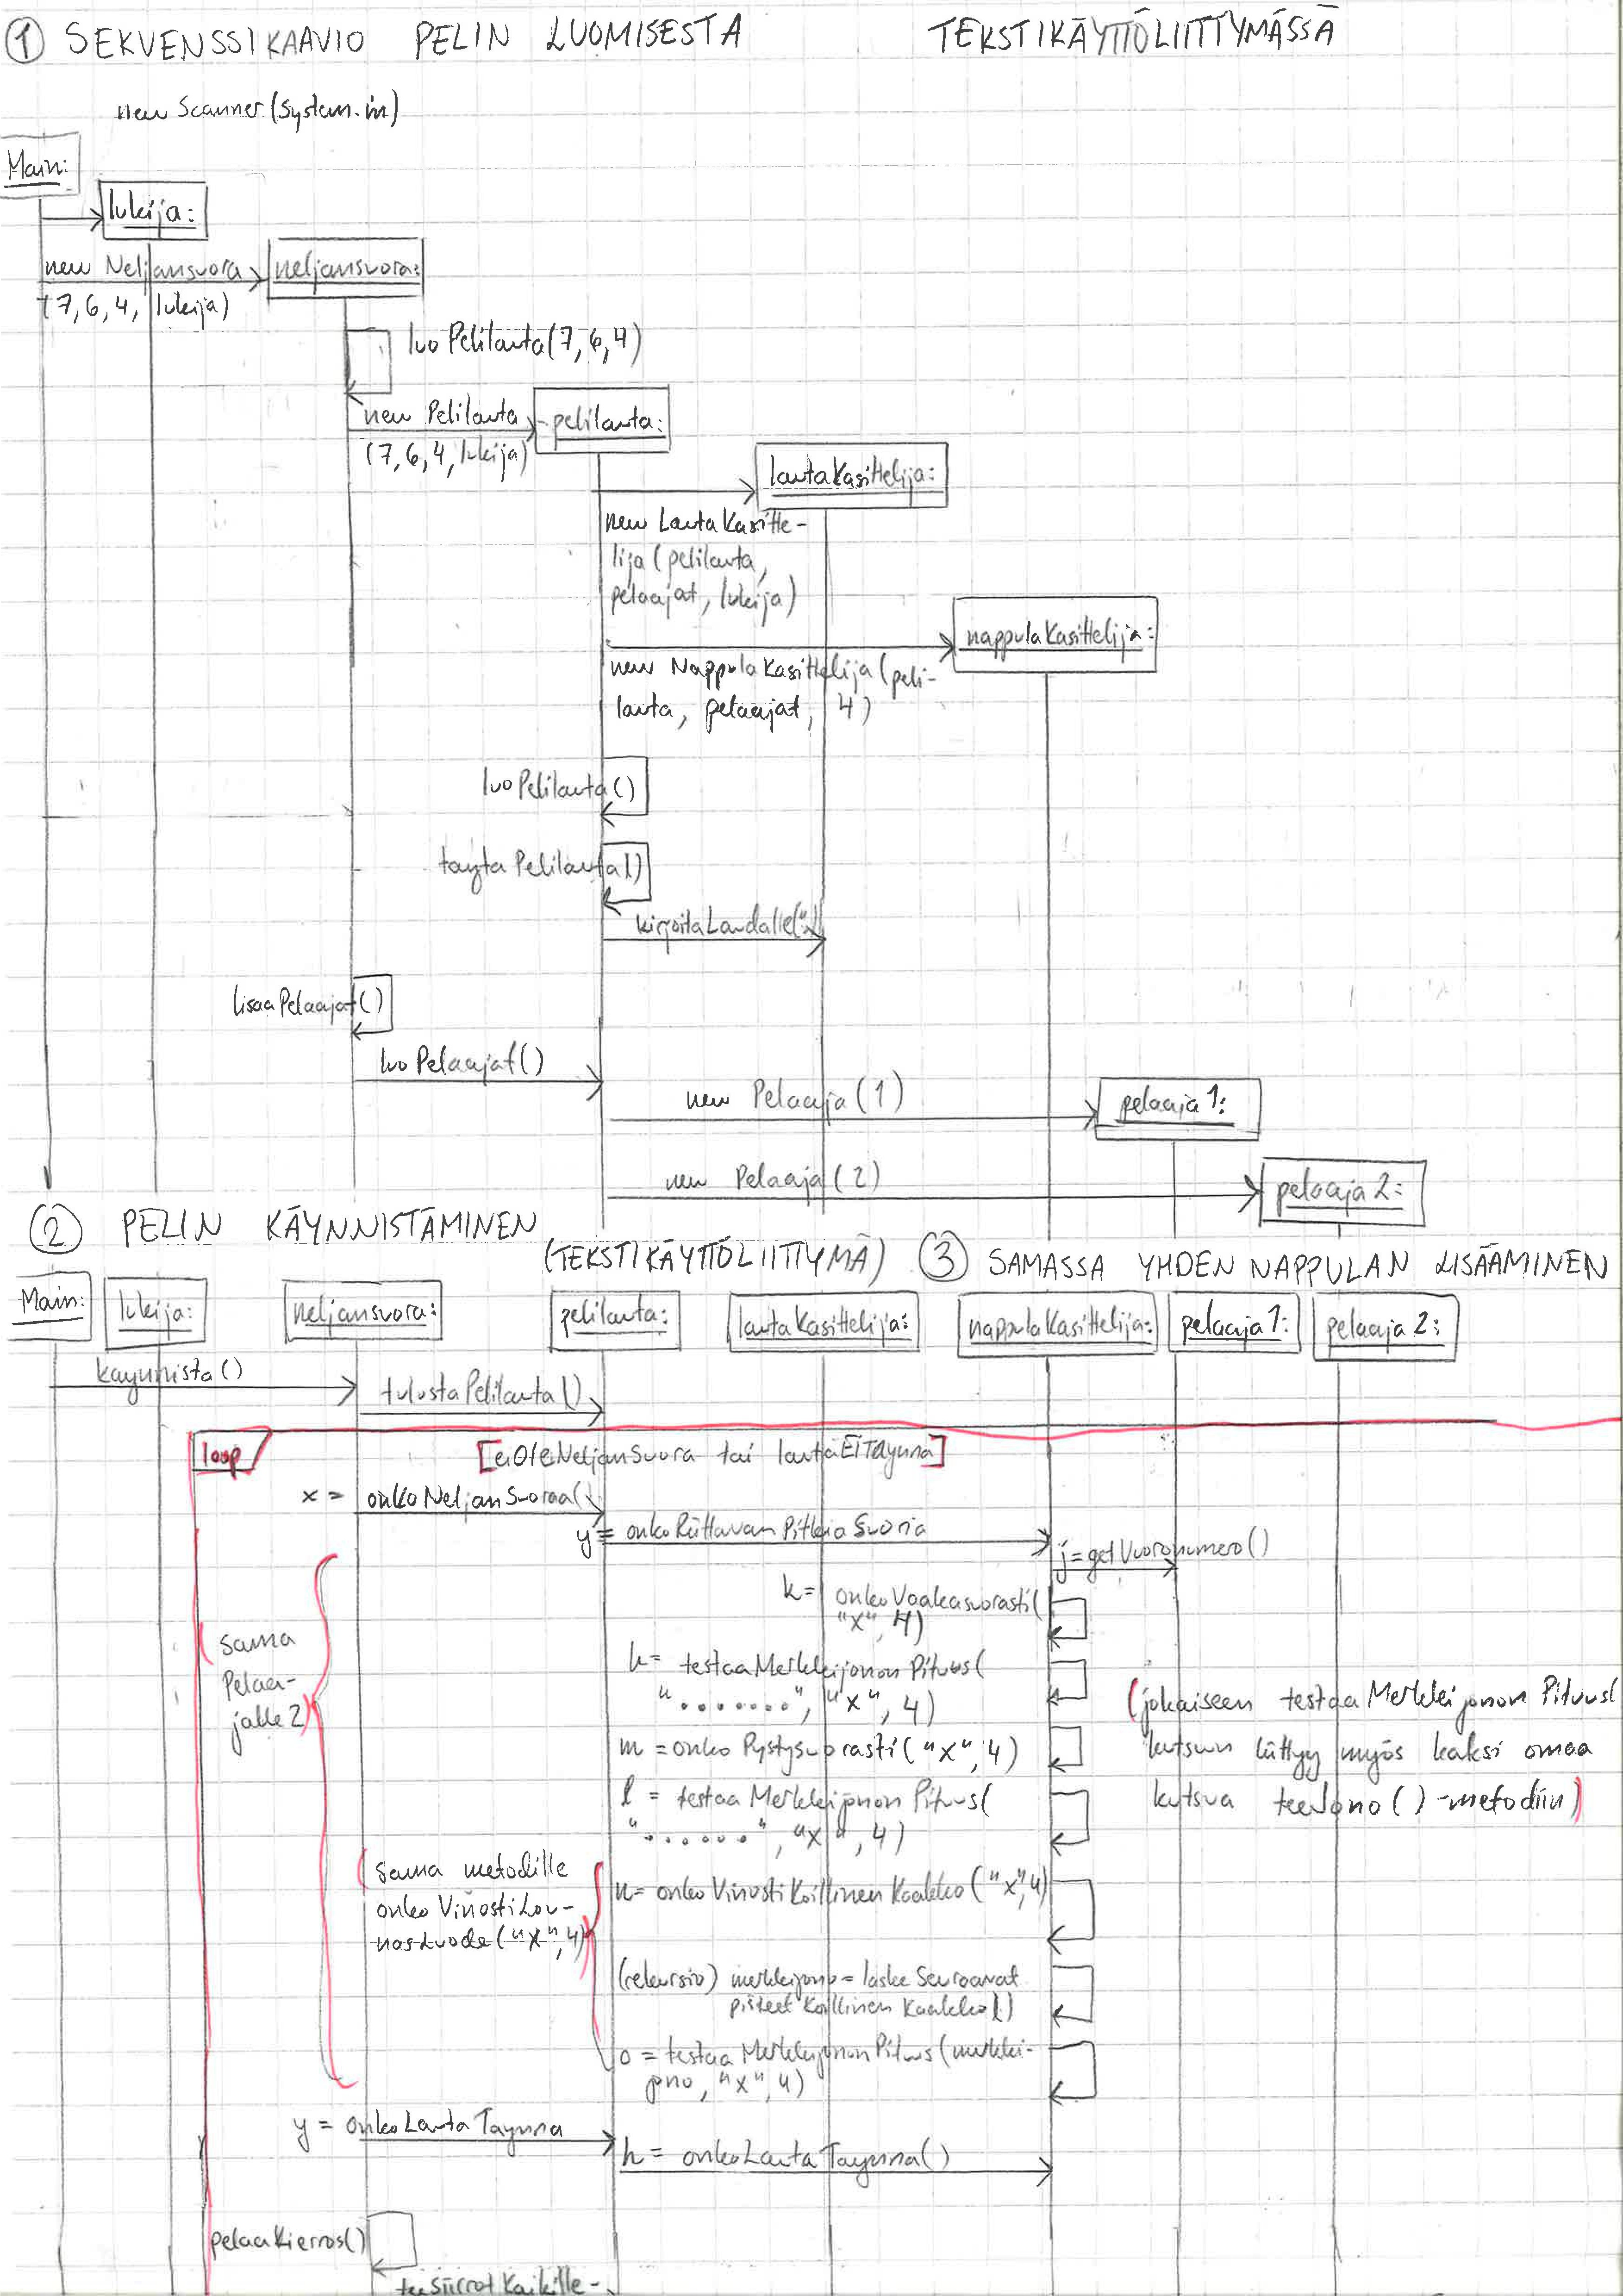 ① SEKVENSSIKAAVIO PELIN LUOMISESTA TEKSTIKÄYTTÖLIITTYMÄSSÄ
new Scanner(System.in)
Main:
lukija:
new Neljansuora
(7,6,4, lukija)
neljansuora:
luoPelilauta(7,6,4)
new Pelilauta
(7,6,4,lukija)
pelilauta:
lautaKasittelija:
new LautaKasitte-
lija(pelilauta,
pelaajat, lukija)
nappulaKasittelija:
new NappulaKasittelija(peli-
lauta, pelaajat, 4)
luoPelilauta()
taytaPelilauta()
kirjoitaLaudalle(".")
lisaaPelaajat()
luoPelaajat()
new Pelaaja(1)
pelaaja1:
new Pelaaja(2)
pelaaja2:
② PELIN KÄYNNISTÄMINEN
(TEKSTIKÄYTTÖLIITTYMÄ)
③ SAMASSA YHDEN NAPPULAN LISÄÄMINEN
Main:
lukija:
neljansuora:
pelilauta:
lautaKasittelija:
nappulaKasittelija:
pelaaja1:
pelaaja2:
kaynnista()
tulostaPelilauta()
loop
[eiOleNeljanSuora tai lautaEiTäynnä]
x = onkoNeljanSuoraa()
y = onkoRiittavanPitkiaSuoria
j = getVuoronumero()
k = onkoVaakasuorasti(
"x", 4)
h = testaaMerkkijononPituus(
".......", "x", 4)
m = onkoPystysuorasti("x", 4)
l = testaaMerkkijononPituus(
"......", "x", 4)
(jokaiseen testaaMerkkijononPituus(
kutsuun liittyy myös kaksi omaa
kutsua teeJono()-metodiin)
(sama
Pelaa-
jalle 2)
(sama metodille
onkoVinostiLou-
nasLuode("x", 4)
n = onkoVinostiKoillinenKaakko("x", 4)
(rekursio) merkkijono = laskeSeuraavat
pisteetKoillinenKaakko()
o = testaaMerkkijononPituus(merkki-
jono, "x", 4)
y = onkoLautaTaynna
h = onkoLautaTaynna()
pelaaKierros()
teeSiirrotKaikille-